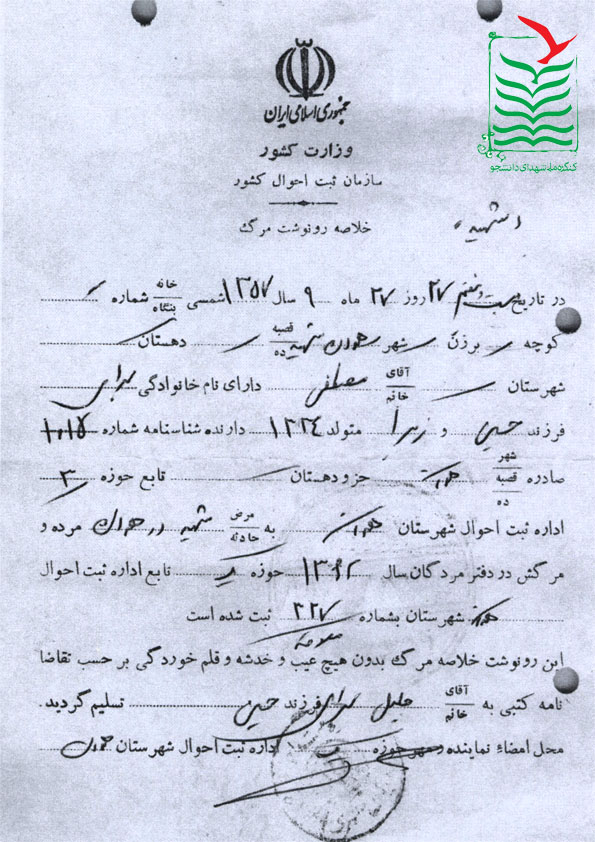 جمهوری اسلامی ایران
کنگره ملی شهدای دانشجو
وزارت کشور
سازمان ثبت احوال کشور
خلاصه رونوشت مرگ
شهید
در تاریخ بیست و هفتم ۲۷ روز ۲۷ ماه ۹ سال ۱۳۵۷ شمسی خانه بنگاه شماره
کوچه برزن شهر قصبه ده شهید دهستان
شهرستان آقای خانم مصطفی دارای نام خانوادگی
فرزند حسین و زهرا متولد ۱۳۳۴ دارنده شناسنامه شماره
صادره شهر قصبه ده جزو دهستان تابع حوزه ۳
اداره ثبت احوال شهرستان به مرض حادثه شهید در مرده و
مرگش در دفتر مردگان سال حوزه تابع اداره ثبت احوال
شهرستان بشماره ۲۲۷ ثبت شده است
این رونوشت خلاصه مرگ بدون هیچ عیب و خدشه و قلم خوردگی بر حسب تقاضا
نامه کتبی به آقای خانم جلیل فرزند حسین تسلیم گردید.
محل امضاء نماینده حوزه اداره ثبت احوال شهرستان